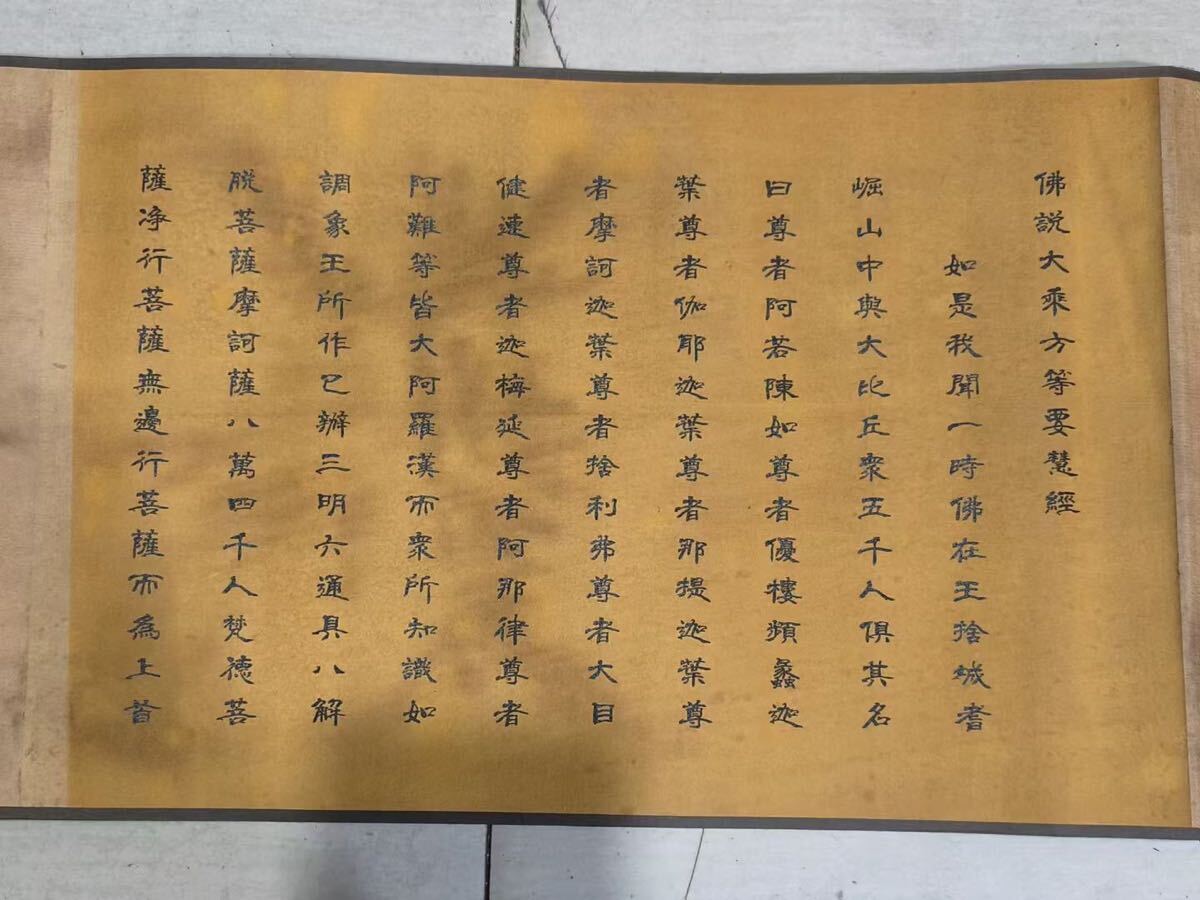 佛説大乘方等要慧經
如是我聞一時佛在王捨城耆
崛山中與大比丘衆五千人俱其名
曰尊者阿若陳如尊者優樓頻蠡迦
葉尊者伽耶迦葉尊者那提迦葉尊
者摩訶迦葉尊者捨利弗尊者大目
健連尊者迦梅延尊者阿那律尊者
阿難等皆大阿羅漢而衆所知識如
調象王所作已辦三明六通具八解
脱菩薩摩訶薩八萬四千人梵德菩
薩净行菩薩無邊行菩薩而為上首